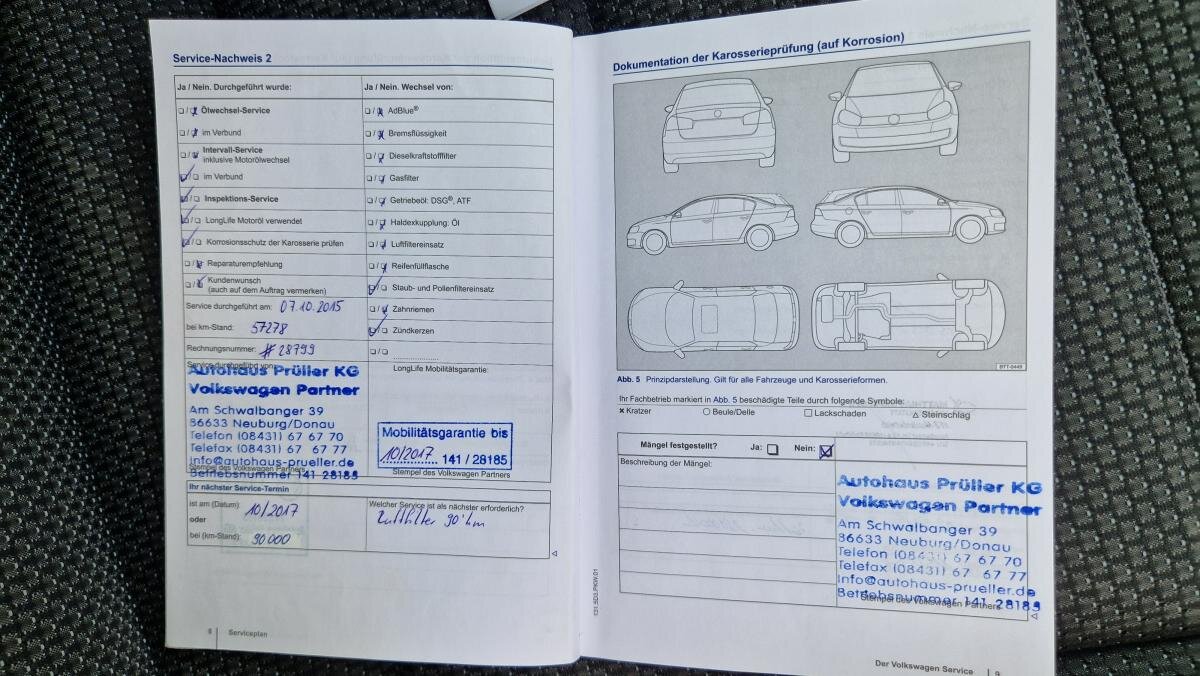 Service-Nachweis 2
Ja / Nein. Durchgeführt wurde:
Ja / Nein. Wechsel von:
Ölwechsel-Service
AdBlue®
im Verbund
Bremsflüssigkeit
Intervall-Service
inklusive Motorölwechsel
Dieselkraftstofffilter
im Verbund
Gasfilter
Inspektions-Service
Getriebeöl: DSG®, ATF
LongLife Motoröl verwendet
Haldexkupplung: Öl
Korrosionsschutz der Karosserie prüfen
Luftfiltereinsatz
Reparaturempfehlung
Reifenfüllflasche
Kundenwunsch
(auch auf dem Auftrag vermerken)
Staub- und Pollenfiltereinsatz
Service durchgeführt am: 07.10.2015
Zahnriemen
bei km-Stand: 57278
Zündkerzen
Rechnungsnummer: #28799
Service durchgeführt von:
LongLife Mobilitätsgarantie:
Autohaus Prüller KG
Volkswagen Partner
Am Schwalbanger 39
86633 Neuburg/Donau
Telefon (08431) 67 67 70
Telefax (08431) 67 67 77
info@autohaus-prueller.de
Betriebsnummer 141 28185
Stempel des Volkswagen Partners
Mobilitätsgarantie bis
10/2017 141 / 28185
Stempel des Volkswagen Partners
Ihr nächster Service-Termin
ist am (Datum): 10/2017
oder
bei (km-Stand): 90000
Welcher Service ist als nächster erforderlich?
Luftfilter 90'km
8 Serviceplan
Dokumentation der Karosserieprüfung (auf Korrosion)
BTT-0449
Abb. 5 Prinzipdarstellung. Gilt für alle Fahrzeuge und Karosserieformen.
Ihr Fachbetrieb markiert in Abb. 5 beschädigte Teile durch folgende Symbole:
× Kratzer ○ Beule/Delle □ Lackschaden △ Steinschlag
Mängel festgestellt? Ja: Nein:
Beschreibung der Mängel:
Autohaus Prüller KG
Volkswagen Partner
Am Schwalbanger 39
86633 Neuburg/Donau
Telefon (08431) 67 67 70
Telefax (08431) 67 67 77
info@autohaus-prueller.de
Betriebsnummer 141 28185
Stempel des Volkswagen Partners
131.5D3.PKW.01
Der Volkswagen Service 9